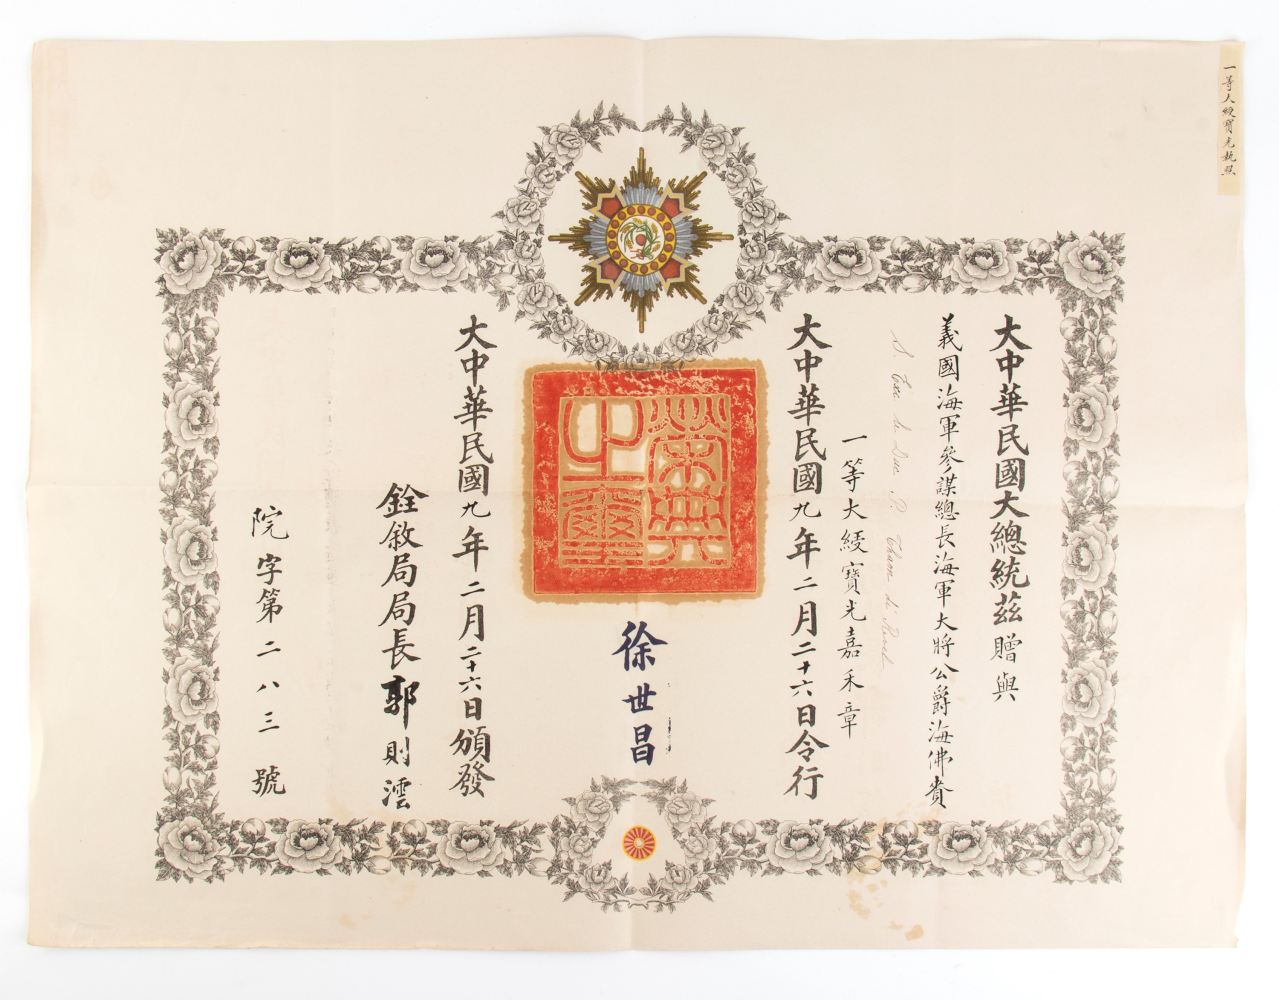 一等大綬寶光執照
大中華民國大總統茲贈與
義國海軍參謀總長海軍大將公爵海佛賚
一等大綬寶光嘉禾章
大中華民國九年二月二十六日令行
榮典之璽
徐世昌
大中華民國九年二月二十六日頒發
銓敘局局長郭則澐
院字第二八三號